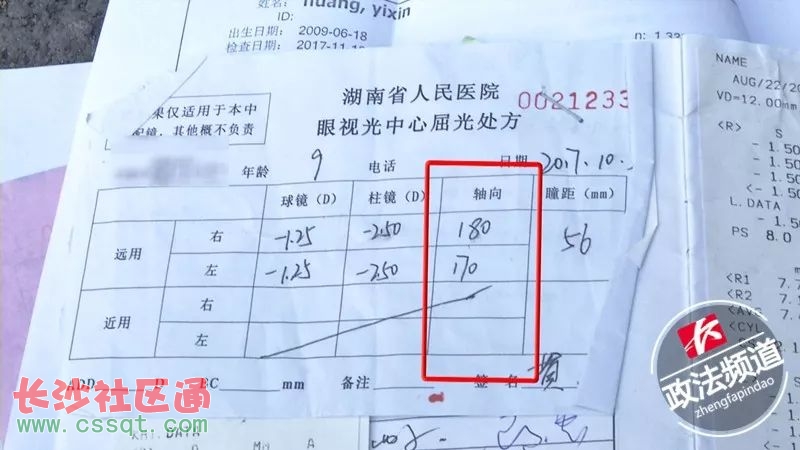 姓名: huang, yixin
ID:
出生日期: 2009-06-18
检查日期: 2017-11-1
n: 1.33
湖南省人民医院
0021233
眼视光中心屈光处方
果仅适用于本中
配镜，其他概不负责
年龄 9 电话 日期 2017.10.
球镜 (D) 柱镜 (D) 轴向 瞳距 (mm)
远用 右 -1.25 -2.50 180 56
左 -1.25 -2.50 170
近用 右
左
ADD D BC mm 备注 签名
NAME
AUG/22/20
VD=12.00mm
<R> S
- 1.50
- 1.50
- 1.50
L.DATA
PS 8.0
<R1 7.7
<R2
<AVE
<CYL
KRT.DATA
长沙社区通
www.cssqt.com
政法频道
zhengfapindao